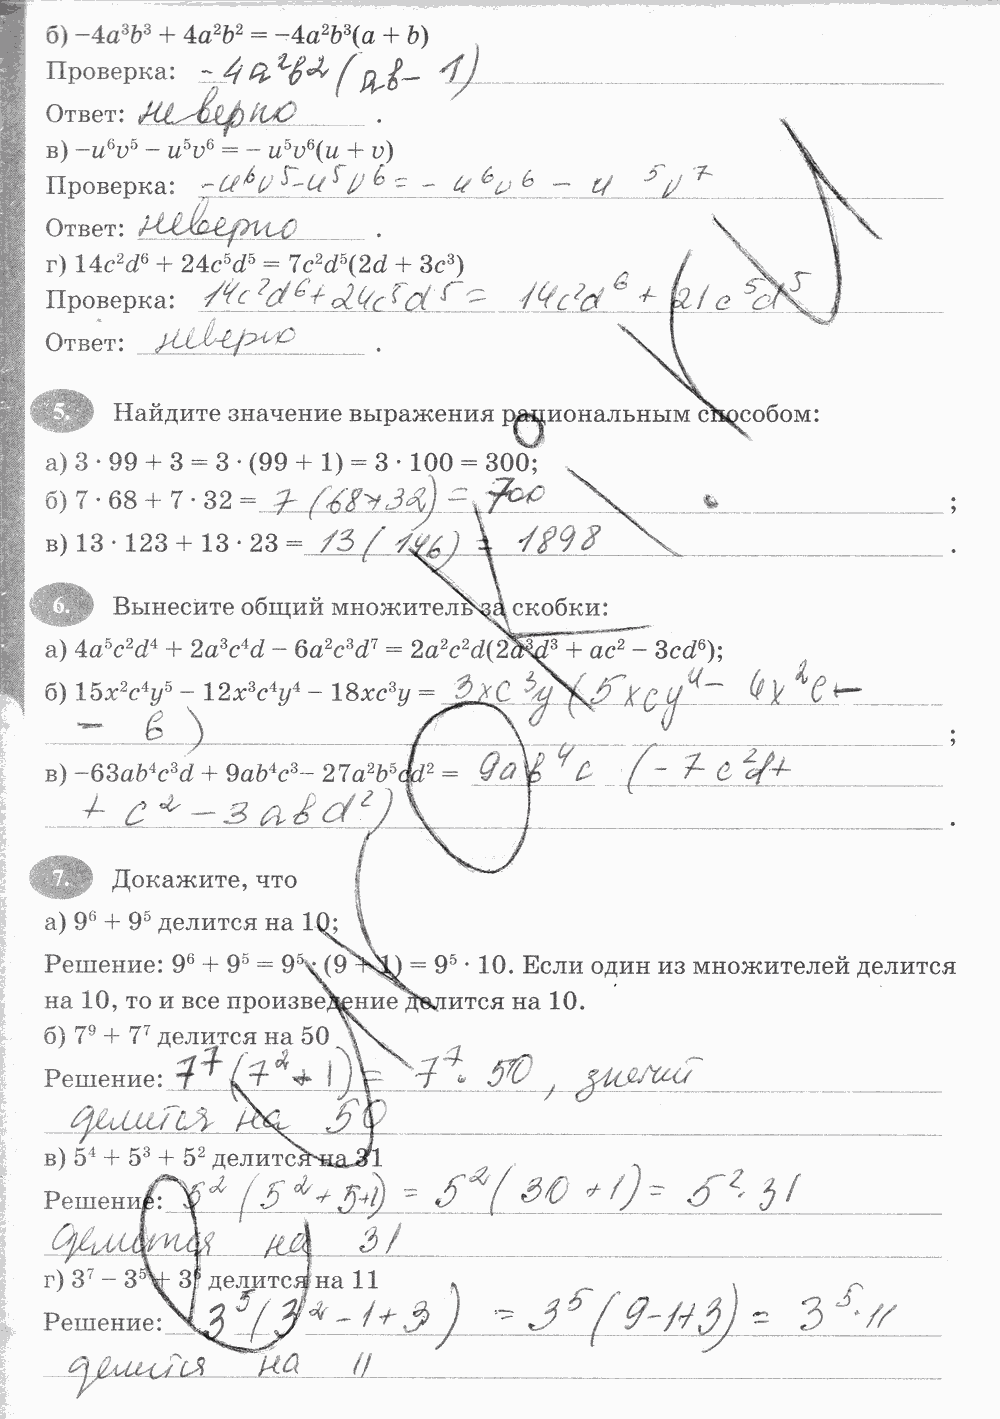 б) −4a³b³ + 4a²b² = −4a²b³(a + b)
Проверка: -4a²b2(ab- 1)
Ответ: неверно .
в) −u⁶v⁵ − u⁵v⁶ = − u⁵v⁶(u + v)
Проверка: -u⁶v⁵-u⁵v⁶= - u⁶v⁶ - u⁵v⁷
Ответ: неверно .
г) 14c²d⁶ + 24c⁵d⁵ = 7c²d⁵(2d + 3c³)
Проверка: 14c²d⁶+24c⁵d⁵= 14c²d⁶ + 21c⁵d⁵
Ответ: неверно .
5. Найдите значение выражения рациональным способом:
а) 3 · 99 + 3 = 3 · (99 + 1) = 3 · 100 = 300;
б) 7 · 68 + 7 · 32 = 7 (68+32) = 700 ;
в) 13 · 123 + 13 · 23 = 13 (146) = 1898 .
6. Вынесите общий множитель за скобки:
а) 4a⁵c²d⁴ + 2a³c⁴d − 6a²c³d⁷ = 2a²c²d(2a³d³ + ac² − 3cd⁶);
б) 15x²c⁴y⁵ − 12x³c⁴y⁴ − 18xc³y = 3xc³y (5xcy⁴ - 4x²c-
- 6 ) ;
в) −63ab⁴c³d + 9ab⁴c³− 27a²b⁵cd² = 9ab⁴c (-7c²d+
+ c² - 3abd²) .
7. Докажите, что
а) 9⁶ + 9⁵ делится на 10;
Решение: 9⁶ + 9⁵ = 9⁵ · (9 + 1) = 9⁵ · 10. Если один из множителей делится
на 10, то и все произведение делится на 10.
б) 7⁹ + 7⁷ делится на 50
Решение: 7⁷(7²+1) = 7⁷· 50 , значит
делится на 50
в) 5⁴ + 5³ + 5² делится на 31
Решение: 5² (5²+5+1) = 5²(30+1)= 5²·31
делится на 31
г) 3⁷ − 3⁵ + 3⁶ делится на 11
Решение: 3⁵(3²-1+3) = 3⁵(9-1+3) = 3⁵·11
делится на 11